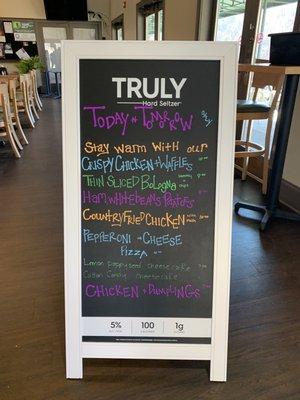 TRULY
Hard Seltzer
TODAY N TOMORROW
Stay warm with our
CRISPY CHICKEN + WAFFLES
THIN SLICED Bologna
Ham WHITEBEANS POTATOES
COUNTRY FRIED CHICKEN
PEPPERONI + CHEESE
PIZZA
Lemon poppyseed cheese cake
Cotton Candy cheesecake
CHICKEN + DUMPLINGS
5% 100 1g